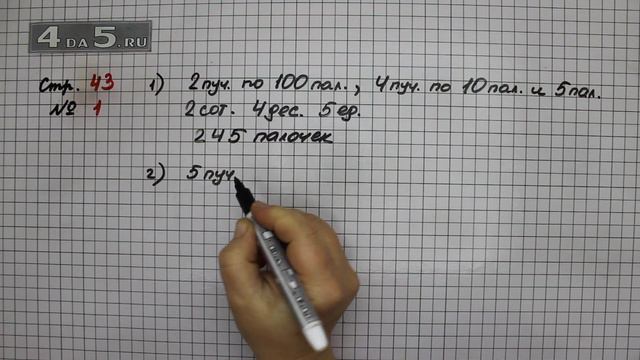 4DA5.RU
Стр. 43 1) 2 пуч. по 100 пал., 4 пуч. по 10 пал. и 5 пал.
№ 1 2 сот. 4 дес. 5 ед.
245 палочек
2) 5 пуч